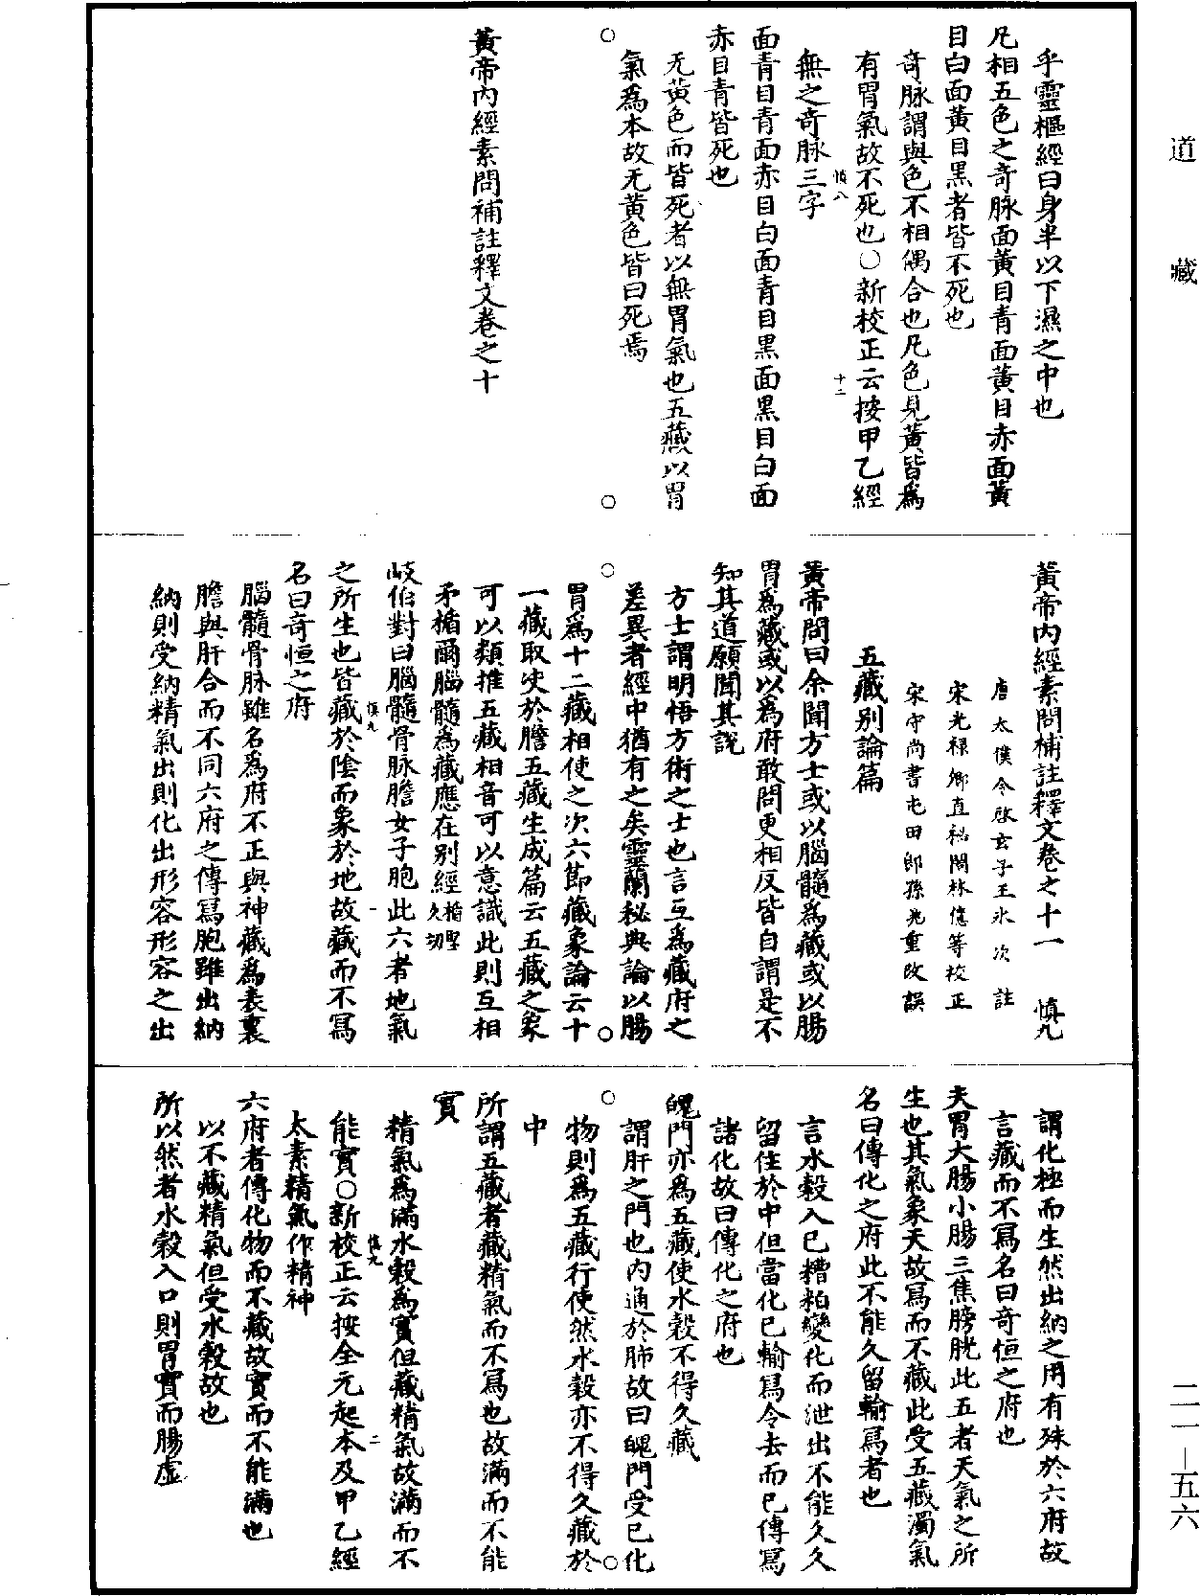 道藏
乎靈樞經曰身半以下濕之中也
凡相五色之奇脉面黃目青面黃目赤面黃
目白面黃目黑者皆不死也
奇脉謂與色不相偶合也凡色見黃皆爲
有胃氣故不死也○新校正云按甲乙經
慎八
十二
無之奇脉三字
面青目青面赤目白面青目黑面黑目白面
赤目青皆死也
无黃色而皆死者以無胃氣也五藏以胃
氣爲本故无黃色皆曰死焉
黃帝內經素問補註釋文卷之十
黃帝內經素問補註釋文卷之十一 慎九
唐太僕令啓玄子王氷次註
宋光祿卿直祕閣林億等校正
宋守尚書屯田郎孫兆重改誤
五藏別論篇
黃帝問曰余聞方士或以腦髓爲藏或以腸
胃爲藏或以爲府敢問更相反皆自謂是不
知其道願聞其說
方士謂明悟方術之士也言互爲藏府之
差異者經中猶有之矣靈蘭秘典論以腸
胃爲十二藏相使之次六節藏象論云十
一藏取决於膽五藏生成篇云五藏之象
可以類推五藏相音可以意識此則互相
矛楯爾腦髓爲藏應在別經楯堅久切
岐伯對曰腦髓骨脉膽女子胞此六者地氣
慎九
一
之所生也皆藏於陰而象於地故藏而不寫
名曰奇恒之府
腦髓骨脉雖名爲府不正與神藏爲表裏
膽與肝合而不同六府之傳寫胞雖出納
納則受納精氣出則化出形容形容之出
謂化極而生然出納之用有殊於六府故
言藏而不寫名曰奇恒之府也
夫胃大腸小腸三焦膀胱此五者天氣之所
生也其氣象天故寫而不藏此受五藏濁氣
名曰傳化之府此不能久留輸寫者也
言水穀入已糟粕變化而泄出不能久久
留住於中但當化已輸寫令去而已傳寫
諸化故曰傳化之府也
魄門亦爲五藏使水穀不得久藏
謂肝之門也內通於肺故曰魄門受已化
物則爲五藏行使然水穀亦不得久藏於
中
所謂五藏者藏精氣而不寫也故滿而不能
實
精氣爲滿水穀爲實但藏精氣故滿而不
慎九
二
能實○新校正云按全元起本及甲乙經
太素精氣作精神
六府者傳化物而不藏故實而不能滿也
以不藏精氣但受水穀故也
所以然者水穀入口則胃實而腸虛
二一—五六